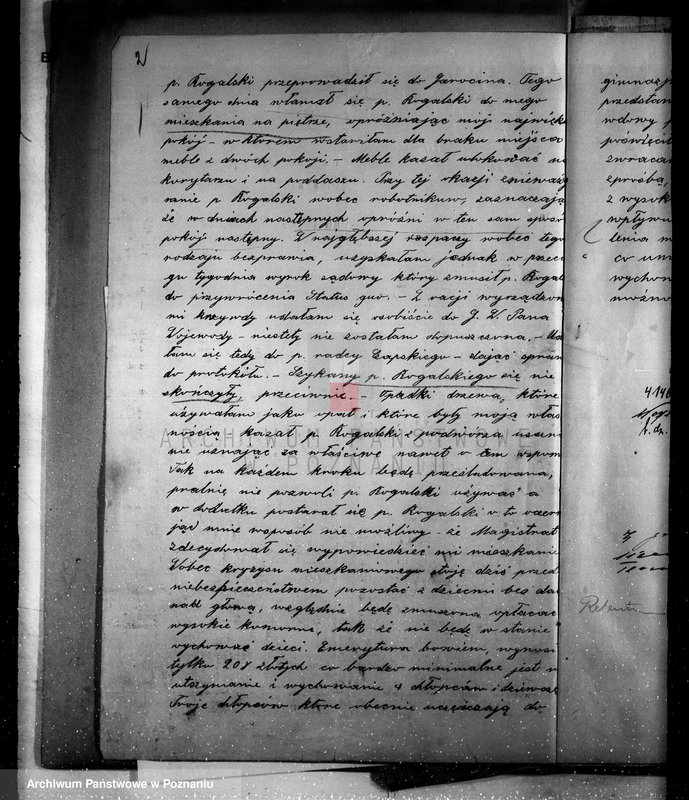 2)
p. Rogalski przeprowadził się do Jarocina. Tego
samego dnia włamał się p. Rogalski do mego
mieszkania na piętrze, opróżniając mój najwięk
pokój - w którem wstawiłam dla braku miejsca
meble z dwóch pokoji. - Meble kazał ulokować n
korytarzu i na poddaszu. Przy tej okazji zniewaz
mnie p Rogalski wobec robotników, zaznaczają
że w dniach następnych opróżni w ten sam spos
pokój następny. W najgłębszej rozpaczy wobec tego
rodzaju bezprawia, uzyskałam jednak w przecią
gu tygodnia wyrok sądowy który zmusił p. Rogal
do przywrócenia Status quo. - Z racji wyrządzon
mi krzywdy udałam się osobiście do J. W. Pana
Wojewody - niestety nie zostałam dopuszczona. - Uda
łam się tedy do p. radcy Zapskiego - dając spraw
do protokółu. - Szykany p. Rogalskiego się nie
skończyły, przeciwnie. - Opadki drzewa, które
używałam jako opał, które były moją włas
nością kazał p. Rogalski z podwórza usun
nie uznając za właściwe nawet o tem wspom
Jak na każdem kroku będę prześladowana,
pralnie nie pozwoli p. Rogalski używać a
w dodatku postarał się p. Rogalski o to
jąc mnie w sposób nie możliwy - że Magistrat
zdecydował się wypowiedzieć mi mieszkanie
Wobec kryzysu mieszkaniowego stoję dziś przed
niebezpieczeństwem pozostać z dziećmi bez da
nad głową, względnie będę zmuszona opłacać
wysokie komorne, tak że nie będę w stanie
wychować dzieci. Emerytura bowiem, wynosi
tylko 208 złotych co bardzo minimalne jest n
utrzymanie i wychowanie 4 chłopców i dziewcz
Troje chłopców które obecnie uczęszczają do
gimnazj
przedstaw
wdowy p
poświęcił
zwracam
z prośbą,
z wysok
wpływu
lenia m
co um
wychow
możno
ARCHIWUM PAŃSTWOWE
POZNAŃ
Archiwum Państwowe w Poznaniu